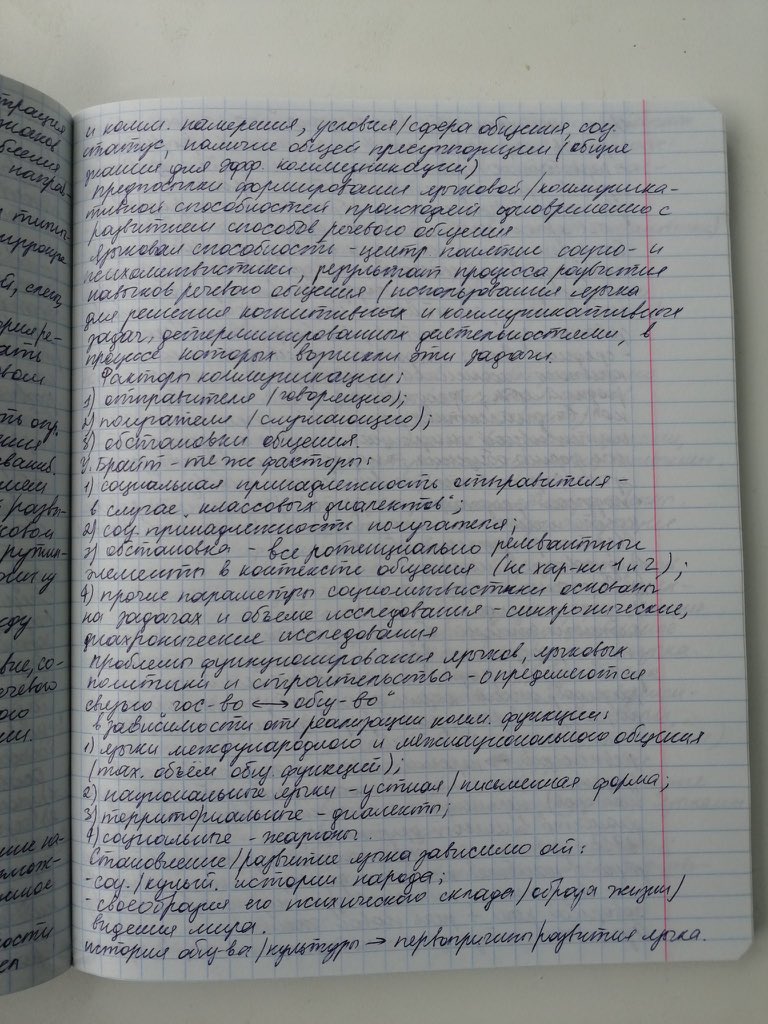 трация
знаков
бления
направ-
типы-
ать
вом
ния
ковой
жду
вие, со-
речевого
ого
ии.
ние на-
ности
и комм. намерения, условия/сфера общения, соц.
статус, наличие общей пресуппозиции (общие
знания для эфф. коммуникации)
предпосылки формирования языковой/коммуника-
тивной способностей происходят одновременно с
развитием способов речевого общения
языковая способность - центр. понятие социо- и
психолингвистики, результат процесса развития
навыков речевого общения (использования языка
для решения когнитивных и коммуникативных
задач, детерминированных деятельностями, в
процессе которых возникли эти задачи.
Факторы коммуникации:
1) отправителя (говорящего);
2) получателя (слушающего);
3) обстановки общения.
У. Брайт - те же факторы:
1) социальная принадлежность отправителя -
в случае „классовых диалектов";
2) соц. принадлежности получателя;
3) обстановка - все потенциально релевантные
элементы в контексте общения (не хар-ки 1 и 2);
4) прочие параметры социолингвистики основаны
на задачах и объеме исследования - синхронические,
диахронические исследования
проблемы функционирования языков, языковых
политики и строительства - определяются
связью гос-во ⟷ общ-во"
в зависимости от реализации комм. функции:
1) языки международного и межнационального общения
(max. объём общ. функций);
2) национальные языки - устная/письменная форма;
3) территориальные - диалекты;
4) социальные - жаргоны.
Становление/развитие языка зависимо от:
- соц./культ. истории народа;
- своеобразия его психического склада/образа жизни/
видения мира.
история общ-ва/культуры → первопричины развития языка.